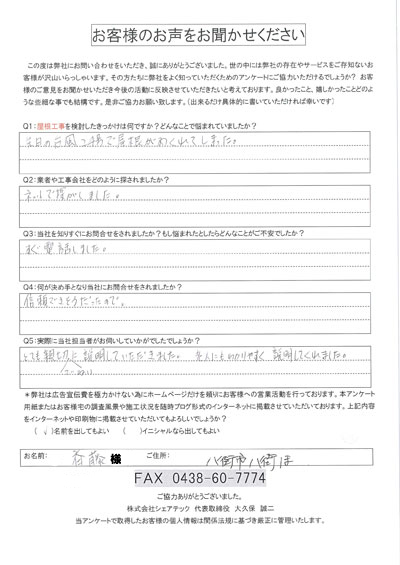 お客様のお声をお聞かせください
この度は弊社にお問い合わせをいただき、誠にありがとうございました。世の中には弊社の存在やサービスをご存知ないお
客様が沢山いらっしゃいます。その方たちに弊社をよく知っていただくためのアンケートにご協力いただけるでしょうか? お客
様のご意見をお聞かせいただき今後の活動に反映させていただきたいと考えております。良かったこと、嬉しかったことどのよ
うな些細な事でも結構です。是非ご協力お願い致します。(出来るだけ具体的に書いていただければ幸いです)
Q1:屋根工事を検討したきっかけは何ですか?どんなことで悩まれていましたか?
先日の台風15号で屋根がめくれてしまった。
Q2:業者や工事会社をどのように探されましたか?
ネットで探がしました。
Q3:当社を知りすぐにお問合せをされましたか?もし悩まれたとしたらどんなことがご不安でしたか?
すぐ電話しました。
Q4:何が決め手となり当社にお問合せをされましたか?
信頼できそうだったので。
Q5:実際に当社担当者がお伺いしていかがでしたでしょうか?
とても親切に説明していただきました。 素人にもわかりやすく説明してくれました。
ていねい
*弊社は広告宣伝費を極力かけない為にホームページだけを頼りにお客様への営業活動を行っております。本アンケート
用紙またはお客様宅の調査風景や施工状況を随時ブログ形式のインターネットに掲載させていただいております。上記内容
をインターネットや印刷物に掲載させていただいてもよろしいでしょうか?
(✓)名前を出してもよい ( )イニシャルなら出してもよい
お名前: 斎藤 様 ご住所: 八街市八街ほ
FAX 0438-60-7774
ご協力ありがとうございました。
株式会社シェアテック 代表取締役 大久保 誠二
当アンケートで取得したお客様の個人情報は関係法規に基づき厳正に管理いたします。